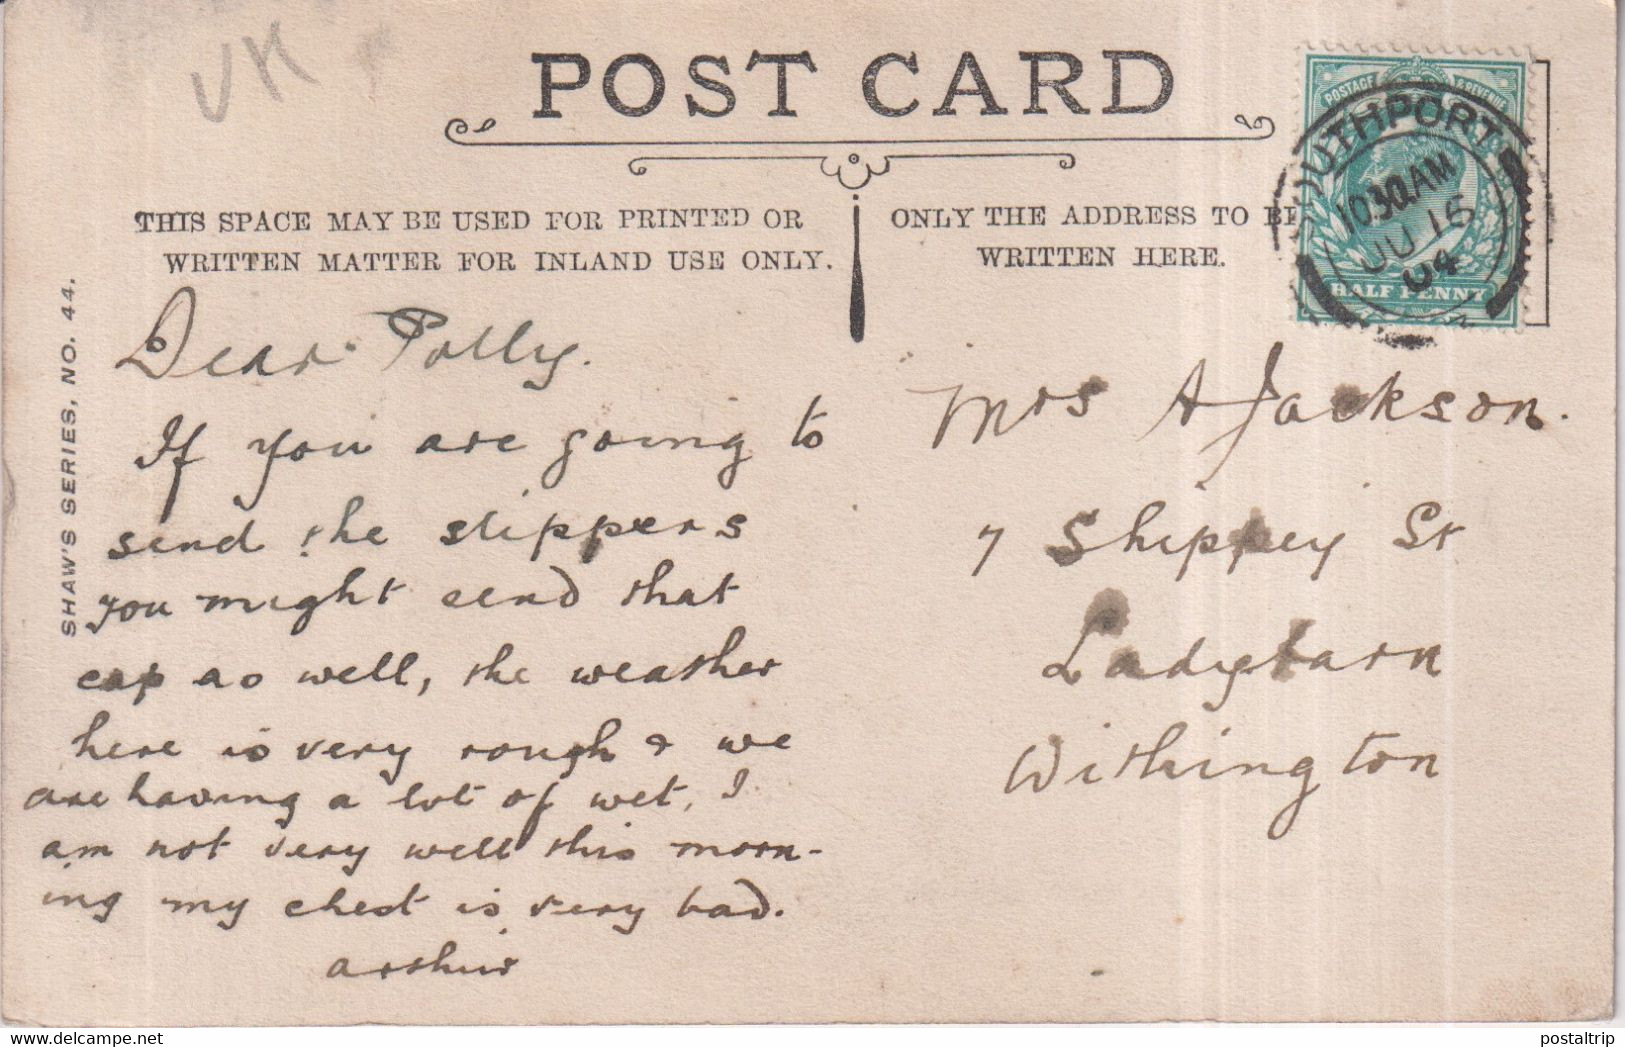 UK
POST CARD
THIS SPACE MAY BE USED FOR PRINTED OR
WRITTEN MATTER FOR INLAND USE ONLY.
ONLY THE ADDRESS TO BE
WRITTEN HERE.
POSTAGE & REVENUE
SOUTHPORT
10.30 AM
JU 16
04
HALF PENNY
SHAW'S SERIES, NO. 44.
Dear Polly.
If you are going to
send the slippers
you might send that
cap as well, the weather
here is very rough & we
are having a lot of wet. I
am not very well this morn-
ing my chest is very bad.
Arthur
Mrs A Jackson.
7 Shippey St
Ladybarn
Withington
postaltrip